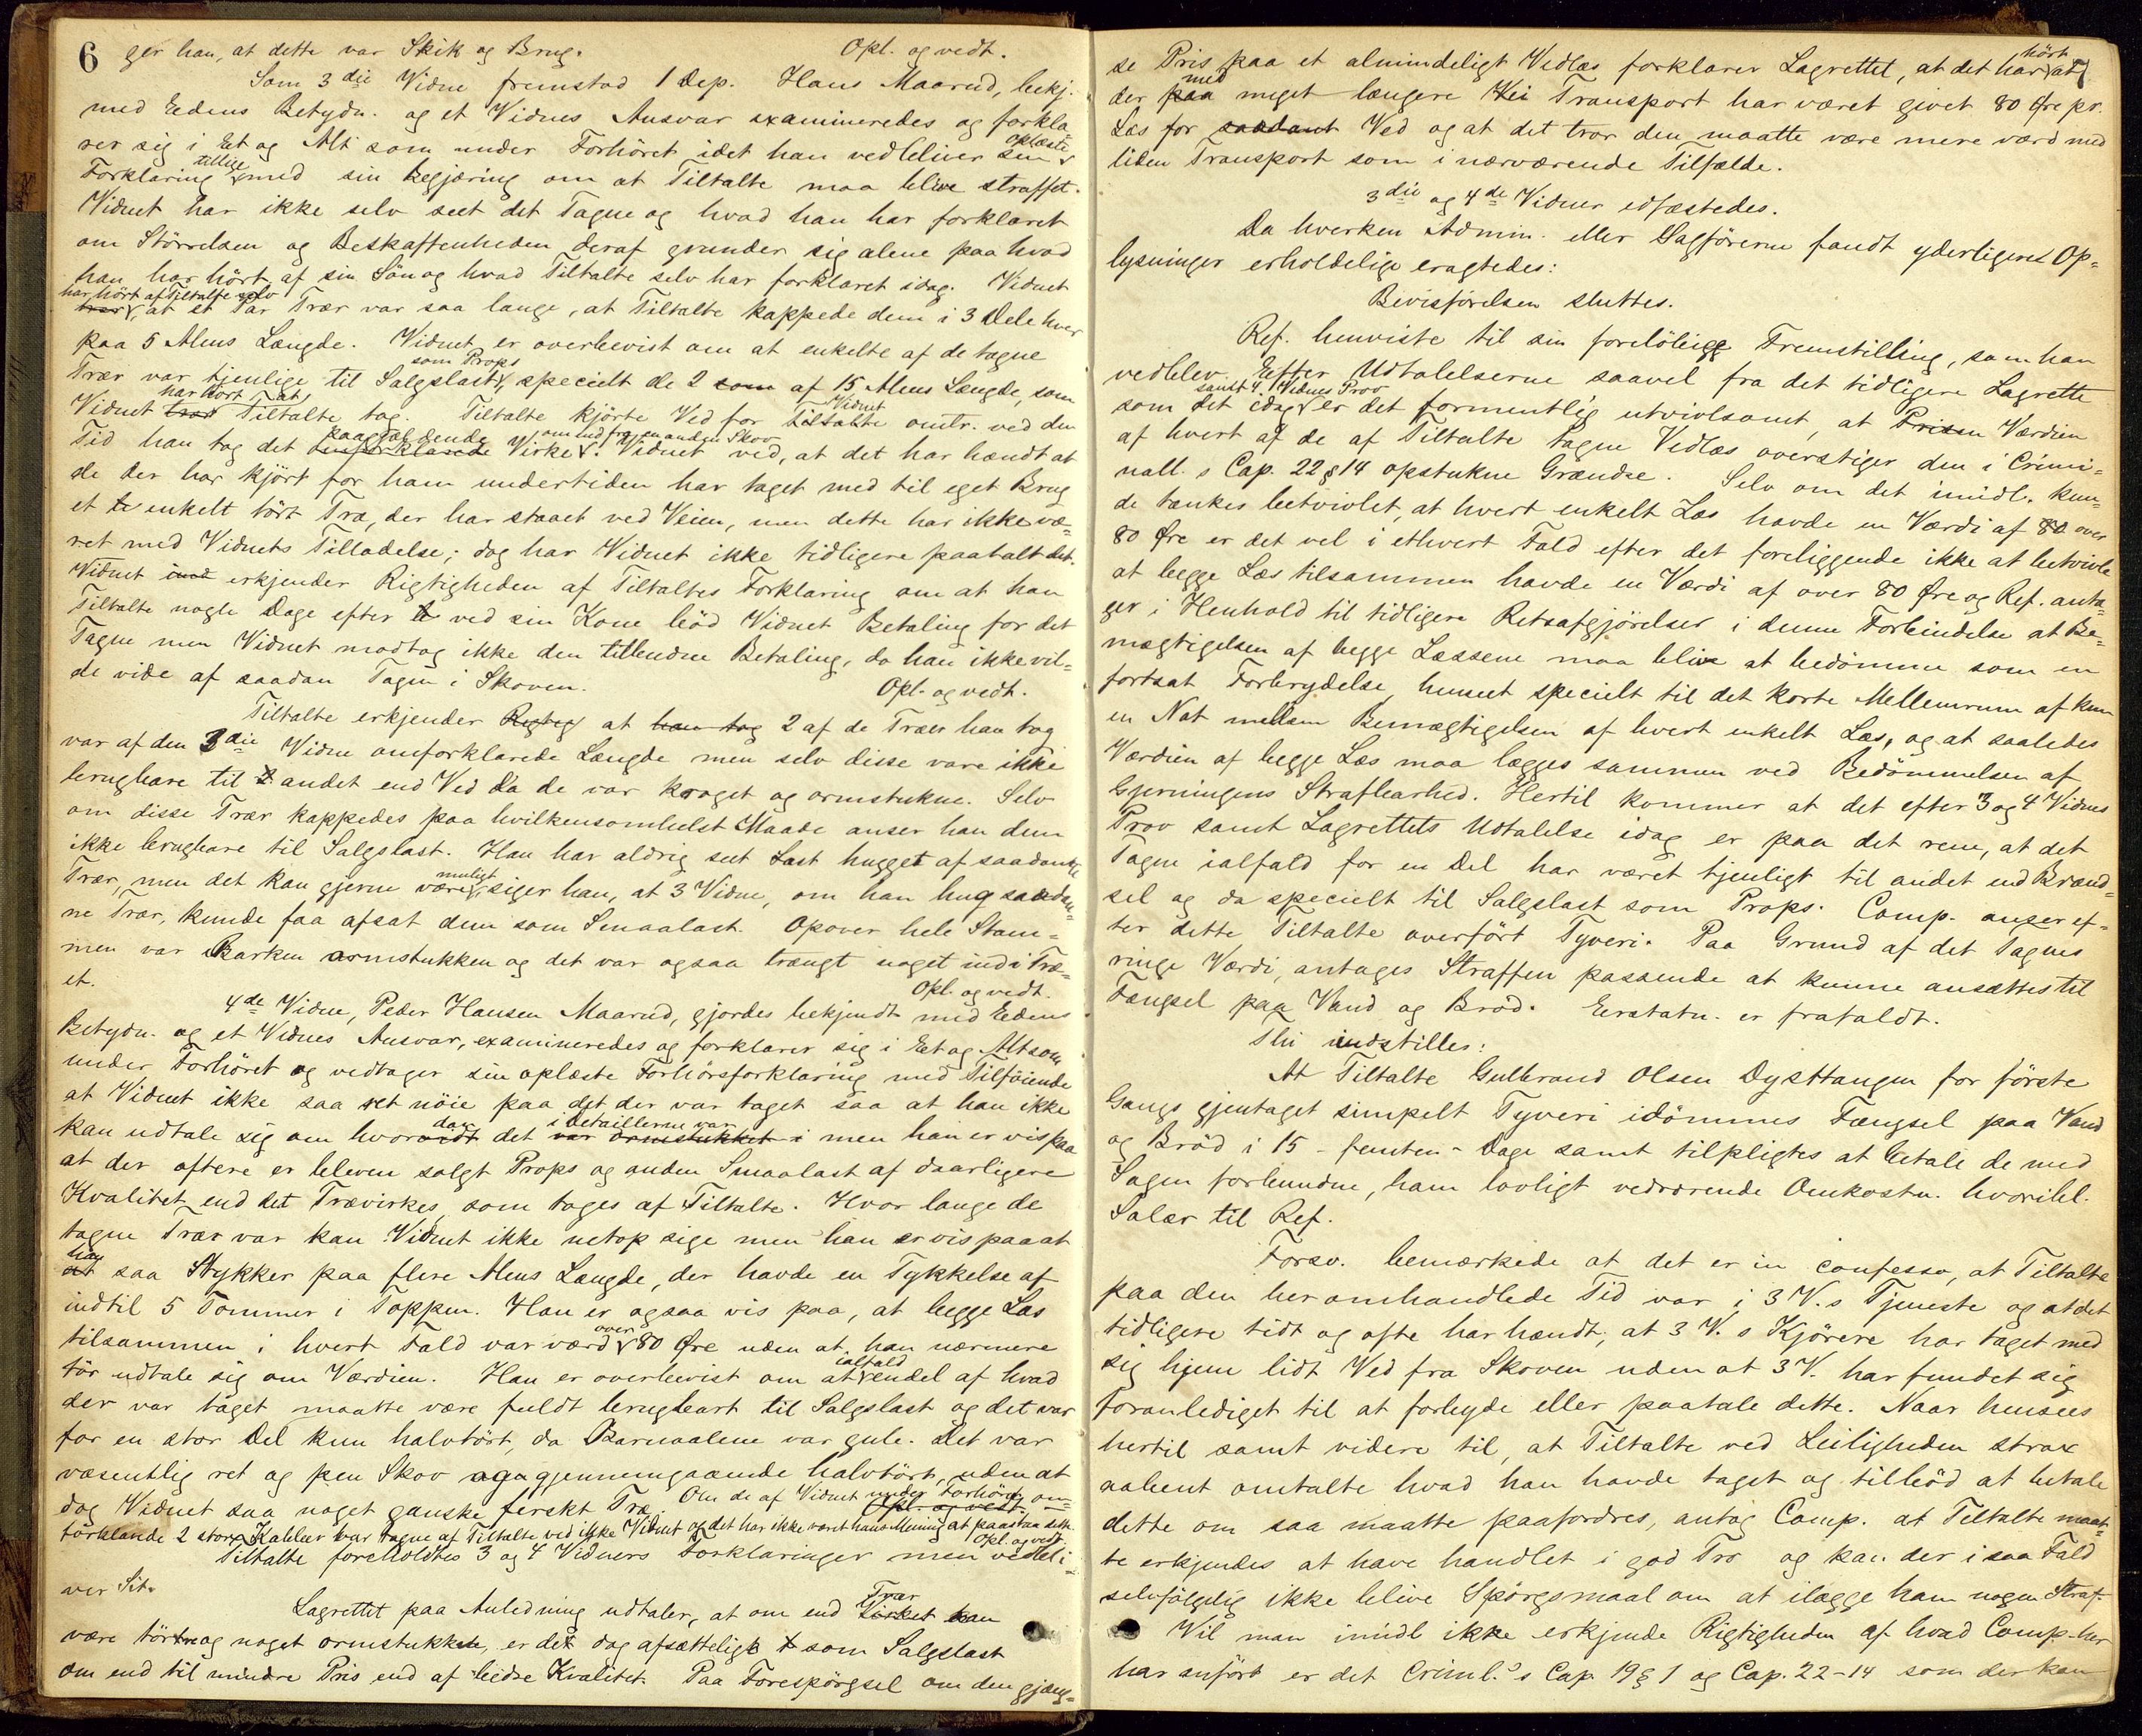 6 ger han, at dette var Skik og Brug. Opl. og vedt.
Som 3die Vidne fremstod 1 Dep. Hans Maarud, bekj.
med Eedens Betydn. og et Vidnes Ansvar examineredes og forkla-
rer sig i Et og Alt som under Forhöret idet han vedbliver sin oplæste
Forklaring tillige med sin Begjæring om at Tiltalte maa blive straffet.
Vidnet har ikke selv seet det Tagne og hvad han har forklaret
om Störrelsen og Beskaffenheden deraf grunder sig alene paa hvad
han har hört af sin Sön og hvad Tiltalte selv har forklaret idag. Vidnet
har hört af Tiltalte selv
tror, at et Par Trær var saa lange, at Tiltalte kappede dem i 3 Dele hver
paa 5 Alens Længde. Vidnet er overbevist om at enkelte af de tagne
Trær var tjenlige til Salgslast som Props, specielt de 2 som af 15 Alens Længde, som
Vidnet tror har hört at Tiltalte tog. Tiltalte kjörte Ved for Tiltalte Vidnet omtr. ved den
Tid han tog det omforklarede paagjældende Virke, om end fra en anden Skov. Vidnet ved, at det har hændt at
de der har kjört for ham undertiden har taget med til eget Brug
et te enkelt tört Træ, der har staaet ved Veien, men dette har ikke væ-
ret med Vidnets Tilladelse; dog har Vidnet ikke tidligere paatalt det.
Vidnet ind erkjender Rigtigheden af Tiltaltes Forklaring om at han
Tiltalte nogle Dage efter te ved sin Kone böd Vidnet Betaling for det
Tagne men Vidnet modtog ikke den tilbudne Betaling, da han ikke vil-
de vide af saadan Tagen i Skoven. Opl. og vedt.
Tiltalte erkjender Rigtig at han tog 2 af de Træer han tog
var af den 3die Vidne omforklarede Længde men selv disse vare ikke
brugbare til andet end Ved da de var kroget og ormstukne. Selv
om disse Trær kappedes paa hvilkensomhelst Maade anser han dem
ikke brugbare til Salgslast. Han har aldrig seet Last hugget af saadanne
Trær, men det kan gjerne være muligt, siger han, at 3 Vidne, om han hug saadan-
ne Trær, kunde faa afsat dem som Smaalast. Opover hele Stam-
men var Barken ormstukken og det var ogsaa trængt noget ind i Træ-
et. Opl. og vedt.
4de Vidne, Peder Hansen Maarud, gjordes bekjendt med Eedens
Betydn. og et Vidnes Ansvar, examineredes og forklarer sig i Et og Alt som
under Forhöret og vedtager sin oplæste Forhörsforklaring med Tilföiende
at Vidnet ikke saa ret nöie paa det der var taget saa at han ikke
kan udtale sig om hvorvidt dan det i Detaillerne var var ormstukket i men han er vis paa
at der oftere er bleven solgt Props og anden Smaalast af daarligere
Kvalitet end det Trævirke, som toges af Tiltalte. Hvor lange de
tagne Trær var kan Vidnet ikke netop sige men han er vis paa at
han
at saa Stykker paa flere Alens Længde, der havde en Tykkelse af
indtil 5 Tommer i Toppen. Han er ogsaa vis paa, at begge Læs
tilsammen i hvert Fald var værd over 80 Öre uden at han nærmere
tör udtale sig om Værdien. Han er overbevist om at ialfald endel af hvad
der var taget maatte være fuldt brugbart til Salgslast og det var
for en stor Del kun halvtört, da Barnaalene var gule. Det var
væsentlig ret og pen Skov gjennemgaaende halvtört, uden at
dog Vidnet saa noget ganske ferskt Træ. Opl. og vedt. Om de af Vidnet under Forhöret om-
forklarede 2 store Kabber var tagne af Tiltalte ved ikke Vidnet og det har ikke været hans Mening at paastaa dette. Opl. og vedt.
Tiltalte foreholdtes 3 og 4 Vidners Forklaringer men vedbli-
ver Sit.
Lagrettet paa Anledning udtaler, at om end Virket Trær kan
være törre og noget ormstukken, er det dog afsætteligt t som Salgslast
om end til mindre Pris end af bedre Kvalitet. Paa Forespörgsel om den gjæng-
se Pris paa et almindeligt Vedlæs forklarer Lagrettet, at det har hört at
der paa med meget længere Vei Transport har været givet 80 Öre pr.
Læs for saadant Ved og at det tror den maatte være mere værd med
liden Transport som i nærværende Tilfælde.
3die og 4de Vidner edfæstedes.
Da hverken Admin. eller Sagförerne fandt yderligere Op-
lysninger erholdelige eragtedes:
Bevisförelsen sluttes.
Ref. henviste til sin forelöbige Fremstilling, som han
vedblev. Efter Udtalelserne saavel fra det tidligere Lagrette
som det idag samt 4. Vidnes Prov er det formentlig utvivlsomt, at Prisen Værdien
af hvert af de af Tiltalte tagne Vedlæs overstiger den i Crimi-
nall.s Cap. 22 § 14 opstukne Grændse. Selv om det imidl. kun-
de tænkes betvivlet, at hvert enkelt Læs havde en Værdi af 80 over
80 Öre er det vel i ethvert Fald efter det foreliggende ikke at betvivle
at begge Læs tilsammen havde en Værdi af over 80 Öre og Ref. anta-
ger i Henhold til tidligere Retsafgjörelser i denne Forbindelse at Be-
mægtigelsen af begge Læssene maa blive at bedömme som en
fortsat Forbrydelse, henseet specielt til det korte Mellemrum af kun
en Nat mellem Bemægtigelsen af hvert enkelt Læs, og at saaledes
Værdien af begge Læs maa lægges sammen ved Bedömmelsen af
Gjerningens Strafbarhed. Hertil kommer at det efter 3 og 4 Vidnes
Prov samt Lagrettets Udtalelse idag er paa det rene, at det
Tagne ialfald for en Del har været tjenligt til andet end Brænd-
sel og da specielt til Salgslast som Props. Comp. anser ef-
ter dette Tiltalte overfört Tyveri. Paa Grund af det Tagnes
ringe Værdi, antages Straffen passende at kunne ansættes til
Fængsel paa Vand og Bröd. Erstatn. er frafaldt.
Thi indstilles:
At Tiltalte Gulbrand Olsen Dysttangen for förste
Gangs gjentaget simpelt Tyveri idömmes Fængsel paa Vand
og Bröd i 15 - femten - Dage samt tilpligtes at betale de med
Sagen forbundne, ham lovligt vedrørende Omkostn. hvoribl.
Salær til Ref.
Forsv. bemærkede at det er in confesso, at Tiltalte
paa den her omhandlede Tid var i 3 V.s Tjeneste og at det
tidligere tidt og ofte har hændt, at 3 V.s Kjörere har taget med
sig hjem lidt Ved fra Skoven uden at 3 V. har fundet sig
foranlediget til at forbyde eller paatale dette. Naar hensees
hertil samt videre til, at Tiltalte ved Leiligheden strax
aabent omtalte hvad han havde taget og tilböd at betale
dette om saa maatte paafordres, antog Comp. at Tiltalte maat-
te erkjendes at have handlet i god Tro og kan der i saa Fald
selvfölgelig ikke blive Spörgsmaal om at ilægge ham nogen Straf.
Vil man imidl ikke erkjende Rigtigheden af hvad Comp. her
har anfört er det Criml.s Cap. 19 § 1 og Cap. 22-14 som der kan